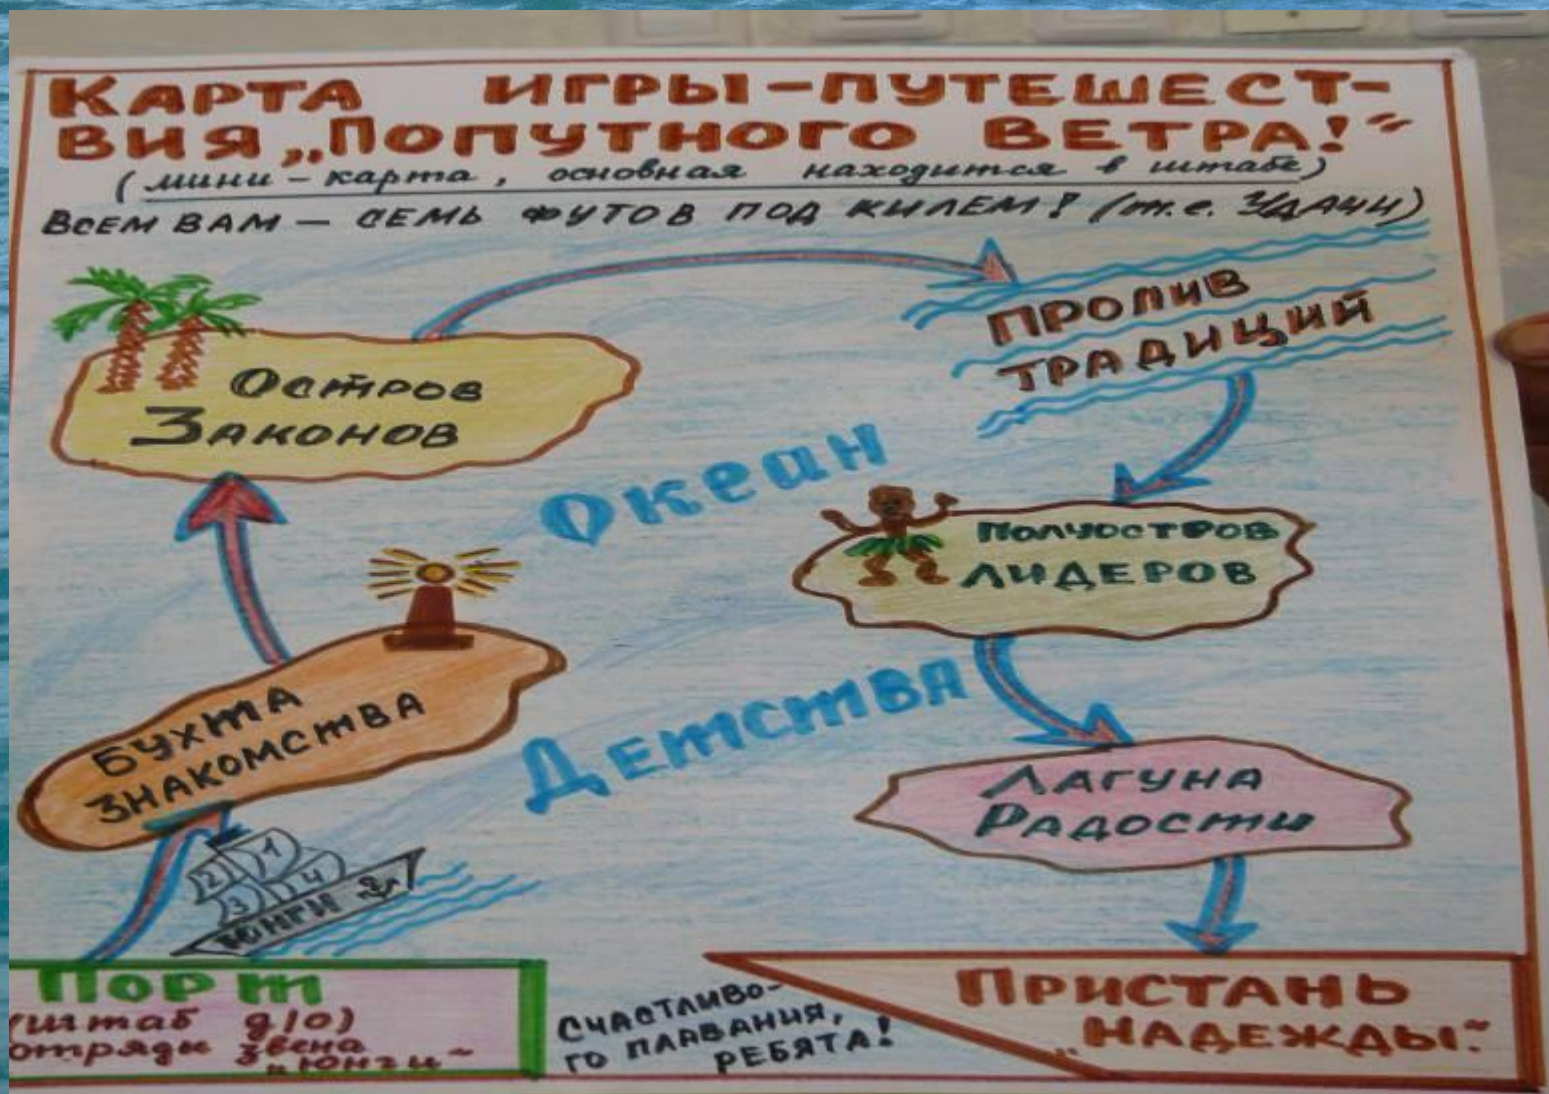 КАРТА ИГРЫ-ПУТЕШЕСТ-
ВИЯ „ПОПУТНОГО ВЕТРА!“
(мини-карта, основная находится в штабе)
ВСЕМ ВАМ — СЕМЬ ФУТОВ ПОД КИЛЕМ! (т.е. УДАЧИ)
ПРОЛИВ
ТРАДИЦИЙ
Остров
Законов
Океан
ПОЛУОСТРОВ
ЛИДЕРОВ
БУХТА
ЗНАКОМСТВА
Детства
ЛАГУНА
РАДОСТИ
2 1
3 4
ЮНГИ
ПОРТ
(штаб д/о)
отряды звена
„Юнги“
СЧАСТЛИВО-
ГО ПЛАВАНИЯ,
РЕБЯТА!
ПРИСТАНЬ
„НАДЕЖДЫ“